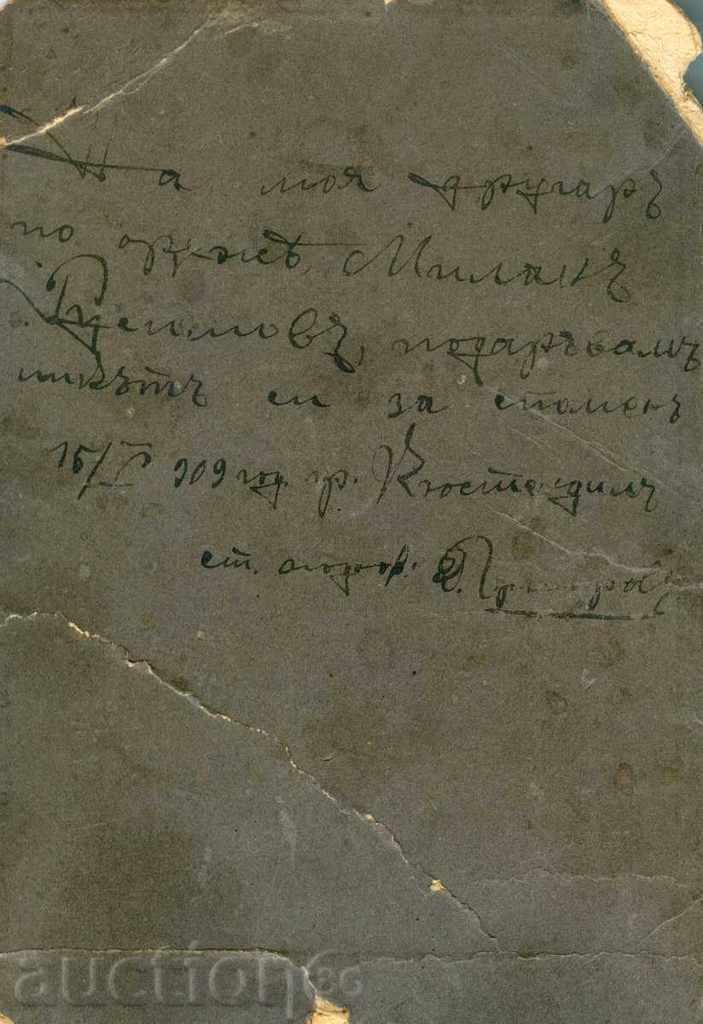 На моя другаръ
по оржжѣ, Миланъ
подарявамъ
ликътъ си за споменъ
15/I 909 год. гр. Кюстендилъ
ст. подоф.
auction